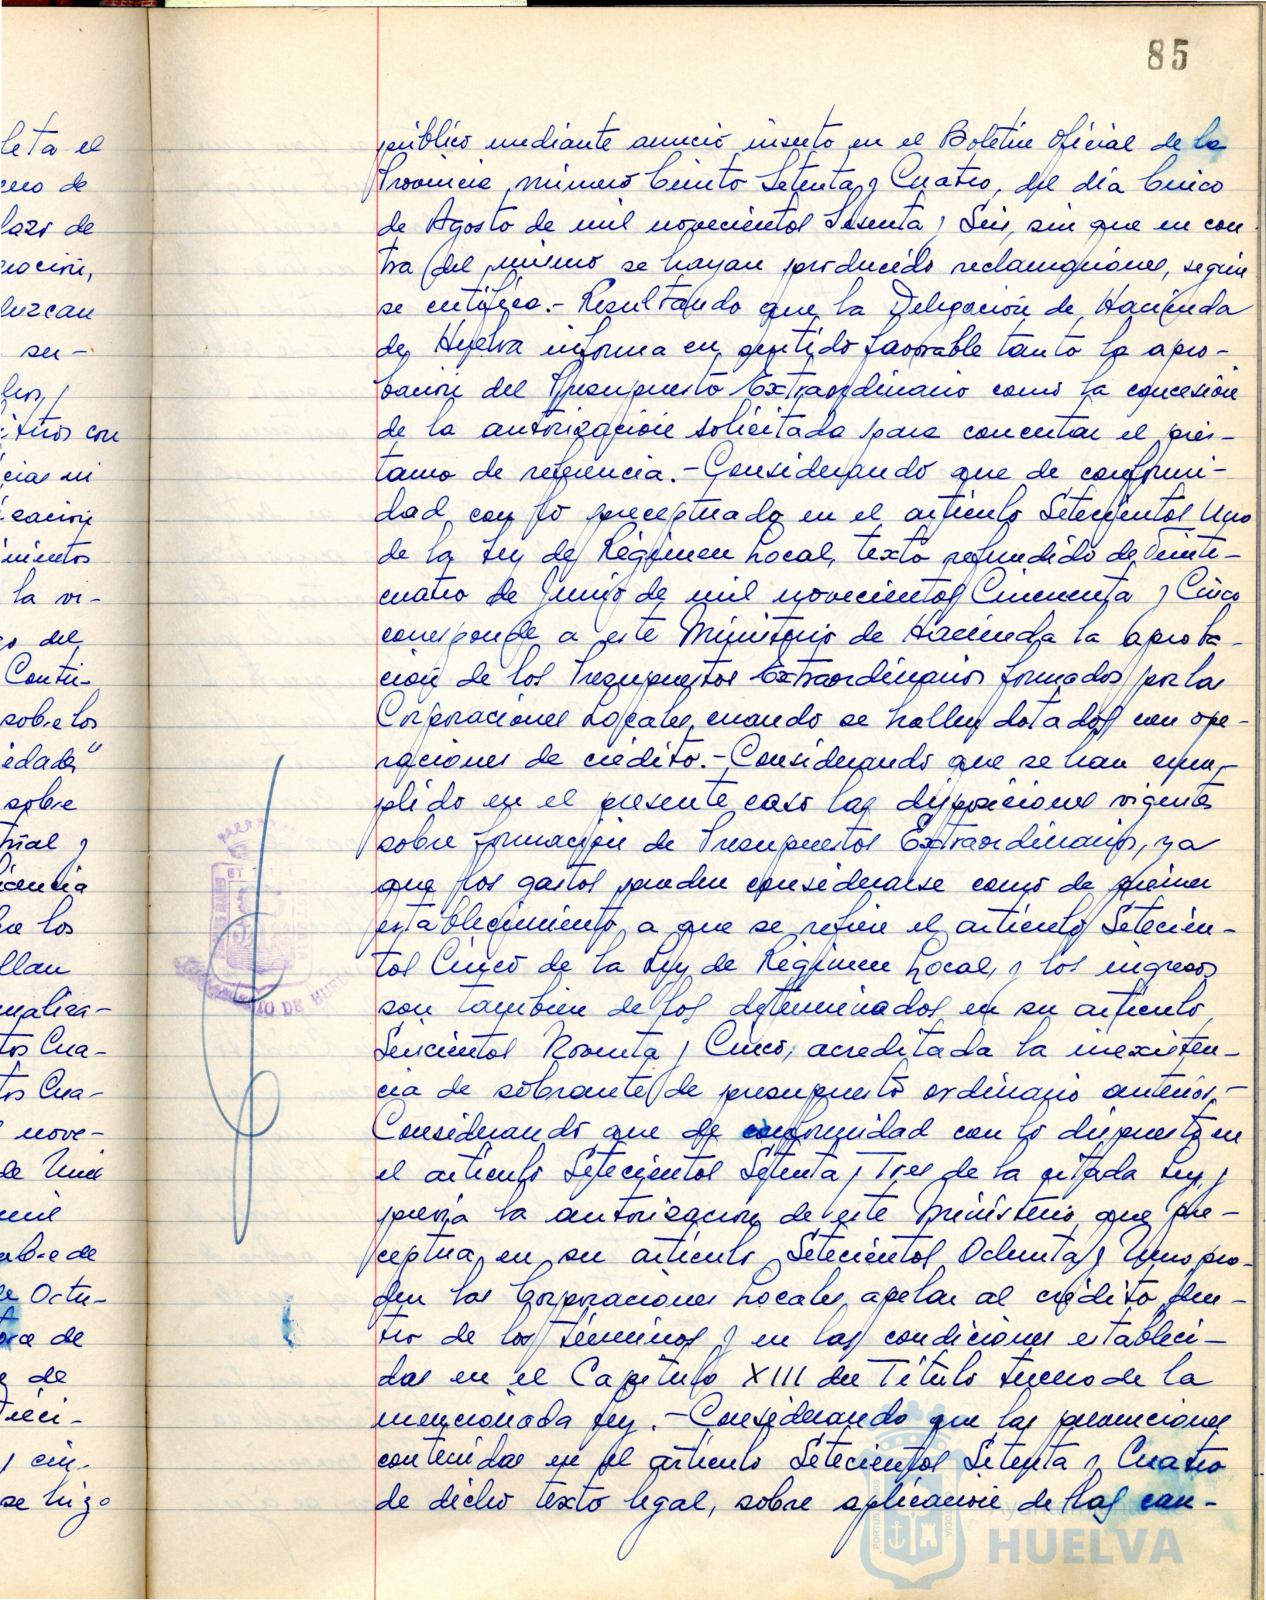 85
público mediante anuncio inserto en el Boletín Oficial de la
Provincia número Ciento Setenta y Cuatro, del día Cinco
de Agosto de mil novecientos Sesenta y Seis, sin que en con
tra del mismo se hayan producido reclamaciones, según
se certifica.- Resultando que la Delegación de Hacienda
de Huelva informa en sentido favorable tanto la apro-
bación del Presupuesto Extraordinario como la concesión
de la autorización solicitada para concertar el prés-
tamo de referencia.- Considerando que de conformi-
dad con lo preceptuado en el artículo Setecientos Uno
de la Ley de Régimen Local, texto refundido de Veinte-
cuatro de Junio de mil novecientos Cincuenta y Cinco
corresponde a este Ministerio de Hacienda la aproba-
ción de los Presupuestos Extraordinarios formados por las
Corporaciones Locales, cuando se hallen dotados con ope-
raciones de crédito.- Considerando que se han cum-
plido en el presente caso las disposiciones vigentes
sobre formación de Presupuestos Extraordinarios, ya
que los gastos pueden considerarse como de primer
establecimiento a que se refiere el artículo Setecien-
tos Cinco de la Ley de Régimen Local, y los ingresos
son también de los determinados en su artículo
Seiscientos Noventa y Cinco, acreditada la inexisten-
cia de sobrante de presupuesto ordinario anterior.-
Considerando que de conformidad con lo dispuesto en
el artículo Setecientos Setenta y Tres de la citada Ley, y
previa la autorización de este Ministerio que pre-
ceptua en su artículo Setecientos Ochenta y Uno, pro-
den las Corporaciones Locales apelar al crédito den-
tro de los términos y en las condiciones estableci-
das en el Capítulo XIII del Título tercero de la
mencionada Ley.- Considerando que las prevenciones
contenidas en el artículo Setecientos Setenta y Cuatro
de dicho texto legal, sobre aplicación de las can-
leta el
lazo de
luzcan
itiros con
la vi-
sobre los
sobre
llan
tos Cua-
tos Cua-
nove-
de Octu-
de
se hizo
AYUNTAMIENTO DE HUELVA
Ayuntamiento de
HUELVA